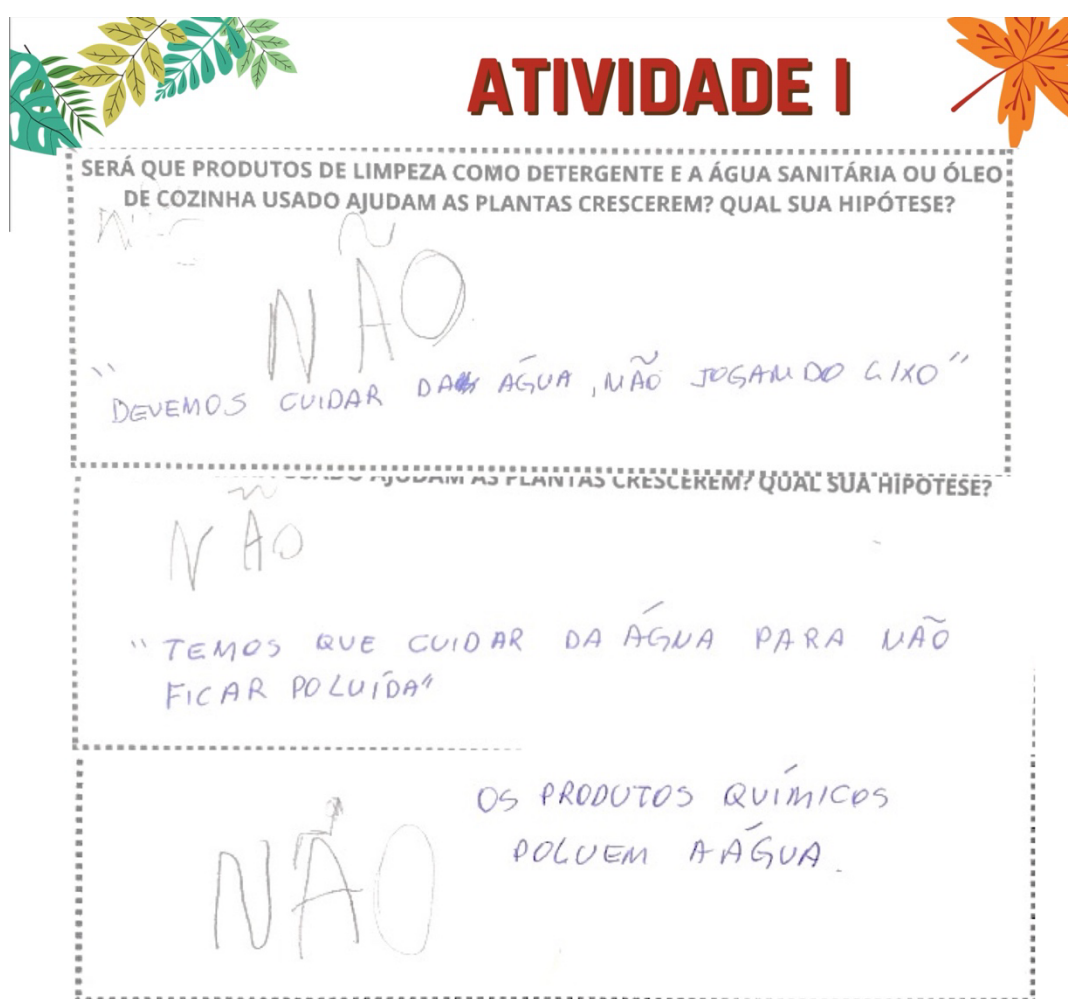 ATIVIDADE I
SERÁ QUE PRODUTOS DE LIMPEZA COMO DETERGENTE E A ÁGUA SANITÁRIA OU ÓLEO
DE COZINHA USADO AJUDAM AS PLANTAS CRESCEREM? QUAL SUA HIPÓTESE?
NÃO
"DEVEMOS CUIDAR DA ÁGUA, NÃO JOGANDO LIXO"
AJUDAM AS PLANTAS CRESCEREM? QUAL SUA HIPÓTESE?
NÃO
"TEMOS QUE CUIDAR DA ÁGUA PARA NÃO
FICAR POLUÍDA"
NÃO
OS PRODUTOS QUÍMICOS
POLUEM A ÁGUA.